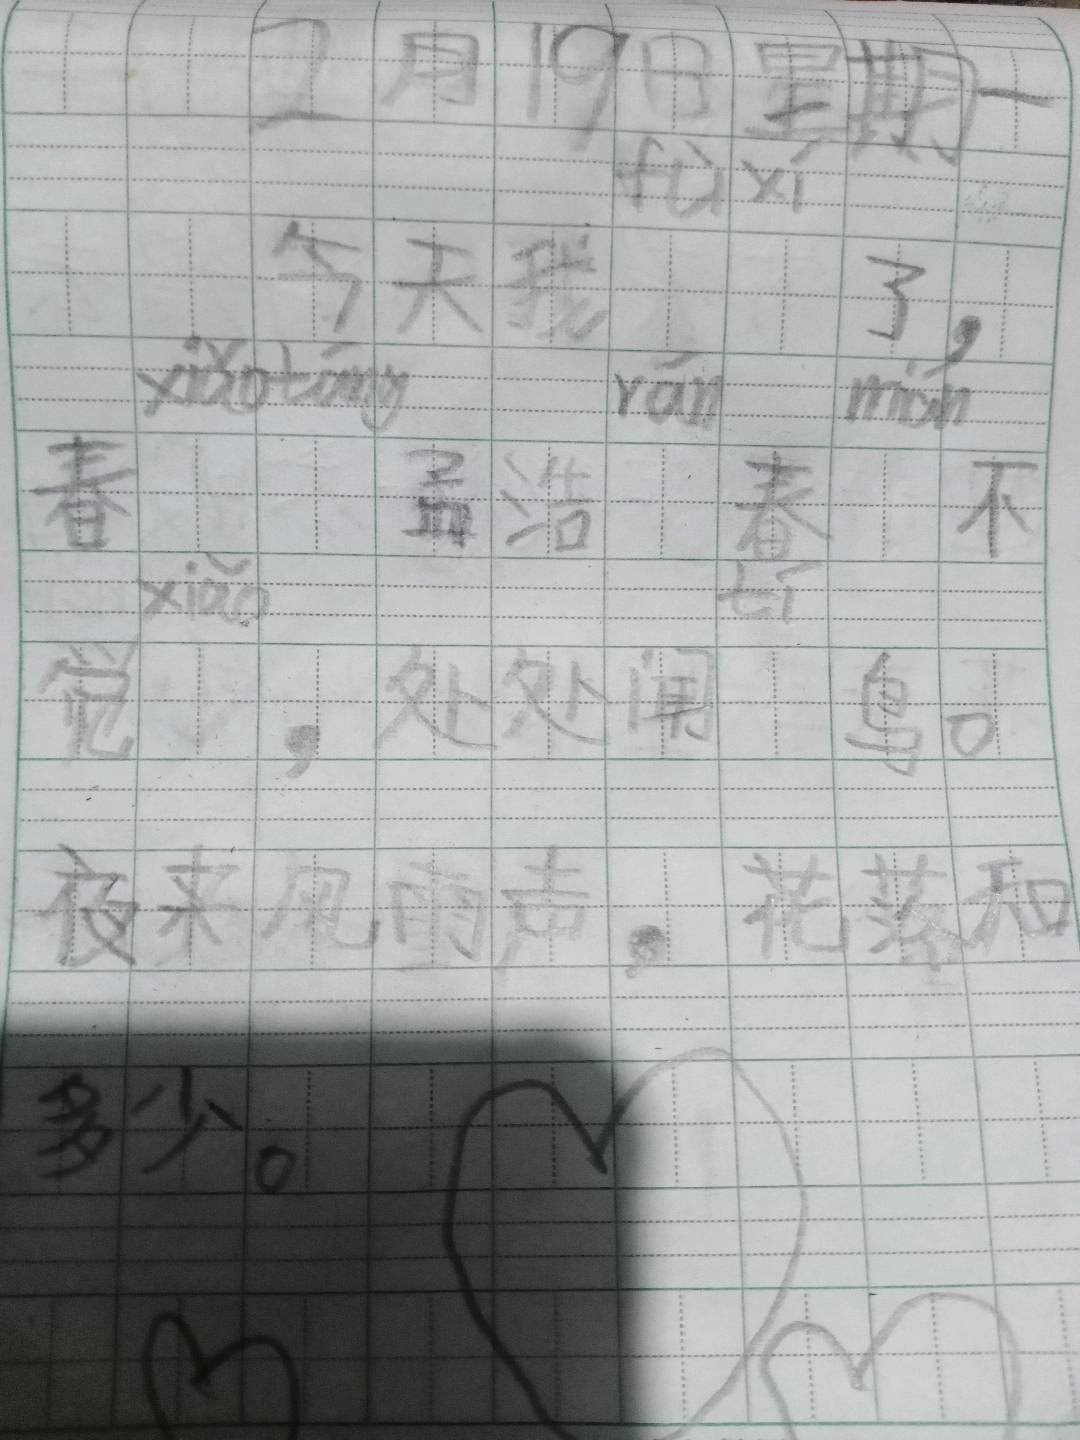 2月19日星期一
fù xí
今天我 了,
xiǎo tíng rán mián
春 孟浩 春 不
xiǎo tí
觉 ,处处闻 鸟。
夜来见雨声.花落和
多少。